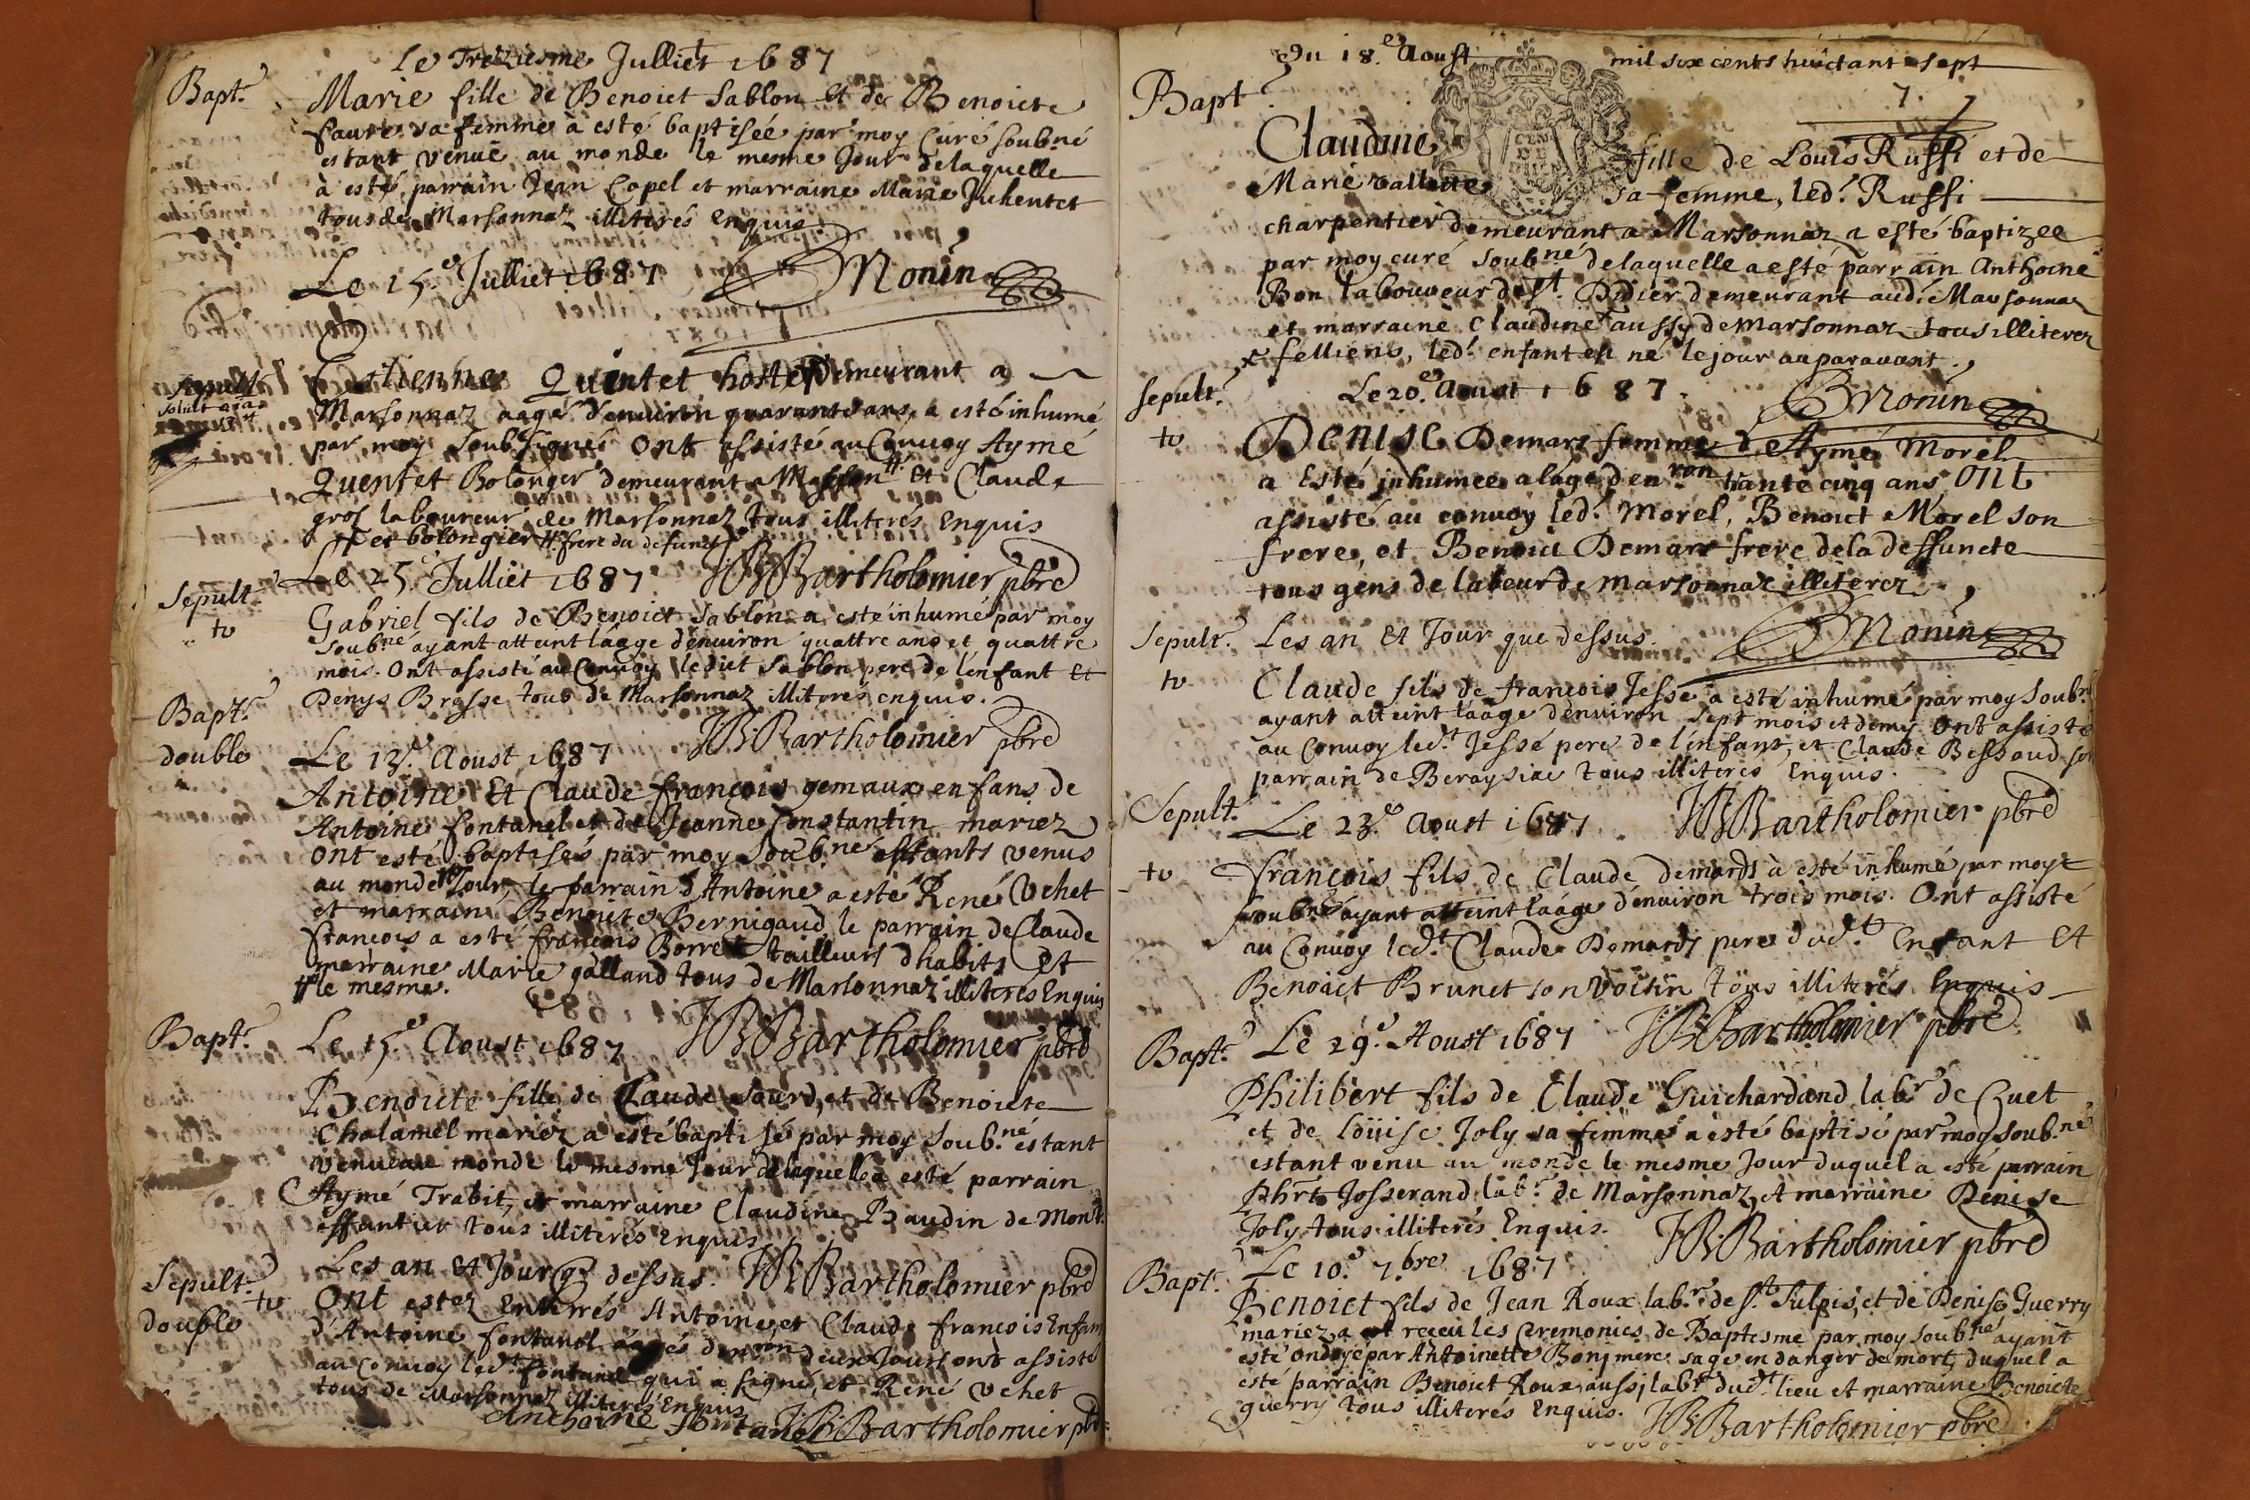 Le Treziesme Julliet 1687
Bapt.
Marie fille de Benoict Sablon et de Benoicte
faure sa femme à esté baptisée par moy Curé soubné
estant venuë au monde le mesme Jour delaquelle
à esté parrain Jean Capel et marraine Marie
tous de Marsonnaz illiterés Enquis
Monin
Le 15.e Julliet 1687
Estienne Quintet hoste demeurant a
Marsonnaz aagé d'environ quarante ans, a esté inhumé
par moy soubsigné ont assisté au Convoy Aymé
Quentet Bolonger demeurant a Mascon # et Claude
gros laboureur de Marsonnaz tous illiterés Enquis
# et bolongier # frere du defunct
Sepult.
tv
Le 25.e Julliet 1687 JB Bartholomier pbre
Gabriel fils de Benoict Sablon a esté inhumé par moy
soub.né ayant atteint láage d'environ quattre ans et quattre
mois. Ont assisté au Convoy ledict Sablon pere de l'enfant et
Denys Brosse tous de Marsonnaz illiterés enquis.
JB Bartholomier pbre
Bapt.
double
Le 13.e Aoust 1687
Antoine Et Claude françois gemaux enfans de
Antoine fontanel et de Jeanne Constantin mariez
ont esté baptisés par moy Soub.né estants venus
au monde # Jour, le parrain d'Antoine a esté René Vchet
et marraine Benoicte Bernigaud, le parrain de Claude
françois a esté françois Borret tailleurs d'habits Et
marraine Marie galland tous de Marsonnaz illiterés Enquis
# le mesme.
Bapt.
Le 15.e Aoust 1687 JB Bartholomier pbre
Benoicte fille de Claude Sourd, et de Benoicte
Chalamel mariez a esté baptisé par moy soub.né éstant
venueau monde le mesme Jour delaquelle a esté parrain
Aymé Trabit, et marraine Claudine Baudin de Mont
tous illiterés Enquis
Sepult. tv
double
Les an et Jour q dessus. JB Bartholomier pbre
Ont estez Enterrés Antoine et Claude françois Enfans
d'Antoine fontanel aagés d'environ deux Jours ont assisté
au Convoy led.t fontanel qui a signé, et René vchet
tous de Marsonnaz illiterés Enquis
Anthoine fontanel JB Bartholomier pbre
Du 18.e Aoust mil six cents huictant e sept
7.
Bapt.
Claudine fille de Louis Ruffi et de
Marie vallette sa femme, led. Ruffi
charpentier demeurant a Marsonnaz a esté baptizee
par moy curé soubné delaquelle a esté parrain Anthoine
Bon laboureur de St. Didier demeurant aud. Marsonnaz
et marraine Claudine aussy de Marsonnaz tous illiterez
x felliens, led. enfant est né le jour auparavant.
Sepult.
tv
Le 20.e Aoust 1687. Monin
Denise Demars femme de Aymé Morel
a Esté inhumee a láge d'environ trante cinq ans Ont
assisté au convoy led. Morel, Benoict Morel son
frere, et Benoict Demars frere dela deffuncte
tous gens de labeur de Marsonnaz illiterez
Sepult.
tv
Les an et Jour que dessus. Monin
Claude fils de francois Jesse a esté inhumé par moy Soub.né
ayant atteint láage d'environ sept mois et demy ont assisté
au Convoy led.t Jesse pere de l'enfant, et Claude Bessaud son
parrain de Beraysiac tous illiterés Enquis.
Sepult.
tv
Le 23.e Aoust 1687. JB Bartholomier pbre
françois fils de Claude Demards à esté inhumé par moy
soubné ayant atteint láage d'environ trois mois. Ont assisté
au Convoy led.t Claude Demards pere dud.t Enfant Et
Benoict Brunet son voisin tous illiterés Enquis
Bapt.
Le 29.e Aoust 1687 JB Bartholomier pbre
Philibert fils de Claude Guichardand lab.r de Cuet
et de Loüise Joly sa femme a esté baptisé par moy soub.né
estant venu au monde le mesme Jour duquel a esté parrain
Phrt Josserand lab.r de Marsonnaz et marraine Denise
Joly tous illiterés Enquis. JB Bartholomier pbre
Bapt.
Le 10.e 7.bre 1687
Benoict fils de Jean Roux lab.r de St Sulpis, et de Denise Guerry
mariez a receu les Ceremonies de Baptesme par moy soub.né ayant
esté ondoyé par Antoinette Bonj mere sage en danger de mort, duquel a
esté parrain Benoict Roux aussj lab.r dud.t lieu et marraine Benoicte
guerry tous illiterés Enquis. JB Bartholomier pbre